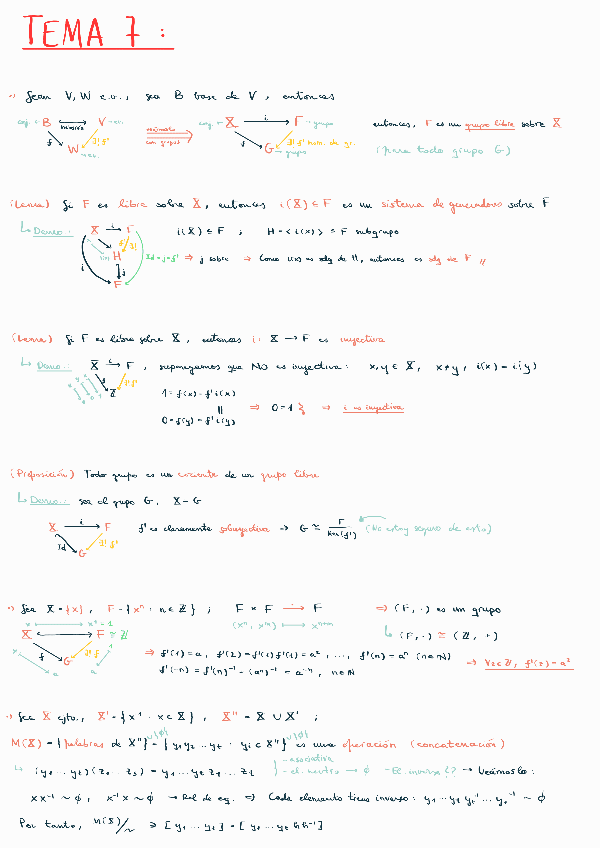 TEMA 7:
·) Sean V, W e.v., sea B base de V, entonces
conj. ← B inclusión V → e.v.
f ∃! f'
W → e.v.
conj. ← X i F → grupo
f ∃! f' hom. de gr.
G → grupo
entonces, F es un grupo libre sobre X
(para todo grupo G)
(Lema) Si F es libre sobre X, entonces i(X) ⊆ F es un sistema de generadores sobre F
Demo: X i F
i(X) ⊆ F ; H = <i(X)> ≤ F subgrupo
H
Id = j∘f' ⇒ j sobre → Como i(X) es sdg de H, entonces es sdg de F //
F
(Lema) Si F es libre sobre X, entonces i: X → F es inyectiva
Demo.: X i F, supongamos que NO es inyectiva: x, y ∈ X, x ≠ y, i(x) = i(y)
1 = f(x) = f'i(x)
⇒ 0 = 1 ⇒ i es inyectiva
0 = f(y) = f'i(y)
(Proposición) Todo grupo es un cociente de un grupo libre
Demo.: sea el grupo G, X = G
X i F
Id ∃! f'
G
f' es claramente sobreyectiva → G ≃ F / Ker(f') (No estoy seguro de esto)
·) Sea X = {x}, F = {xⁿ : n ∈ ℤ} ; F × F → F ⇒ (F, ·) es un grupo
(xⁿ, xᵐ) ⟼ xⁿ⁺ᵐ
(F, ·) ≃ (ℤ, +)
X F ≃ ℤ
f ∃! f'
G
⇒ f'(1) = a, f'(2) = f'(1) f'(1) = a², ..., f'(n) = aⁿ (n ∈ ℕ)
f'(-n) = f'(n)⁻¹ = (aⁿ)⁻¹ = a⁻ⁿ, n ∈ ℕ
⇒ ∀z ∈ ℤ, f'(z) = aᶻ
·) Sea X cjto., X' = {x⁻¹ : x ∈ X}, X'' = X ∪ X' ;
M(X) = {palabras de X''} ∪ {∅} = {y₁ y₂ ... yₜ : yᵢ ∈ X''} ∪ {∅} es una operación (concatenación)
(y₁ ... yₜ)(z₁ ... zₛ) = y₁ ... yₜ z₁ ... zₛ
- asociativa
- el. neutro → ∅ - El. inverso ¿? → Veámoslo:
x x⁻¹ ~ ∅, x⁻¹ x ~ ∅ → Rel de eq. ⇒ Cada elemento tiene inverso: y₁ ... yₜ yₜ⁻¹ ... y₁⁻¹ ~ ∅
Por tanto, M(X)/~ ∋ [y₁ ... yₜ] = [y₁ ... yₜ h h⁻¹]